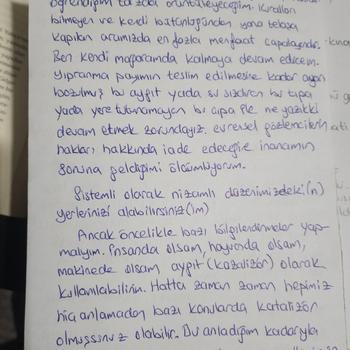 öğrendiğim tarzda örüntüleyeceğim. Kuralları
bilmeyen ve kendi bütünlüğünden yana telaşa
kapılan aramızda en fazla menfaat çapalayandır.
Ben kendi mağaramda kalmaya devam edicem.
Yıpranma payımın teslim edilmesine kadar ayarı
bozulmuş bu aygıt yada su sızdıran bu tıpa
yada yere tutunamayan bu çıpa ile ne yazıkki
devam etmek zorundayız. evrensel gözlemcilerin
hakları hakkında iade edeceğine inancımın
sonuna geldiğimi ölçümlüyorum.
Sistemli olarak nizamlı düzenimizdeki (n)
yerlerinizi alabilirsiniz (im)
Ancak öncelikle bazı bilgilendirmeler yap-
malıyım. İnsanda olsam, hayvanda olsam,
makinede olsam aygıt (katalizör) olarak
kullanılabilirim. Hatta zaman zaman hepimiz
hiç anlamadan bazı konularda katalizör
olmuşsunuz olabilir. Bu anladığım kadarıyla